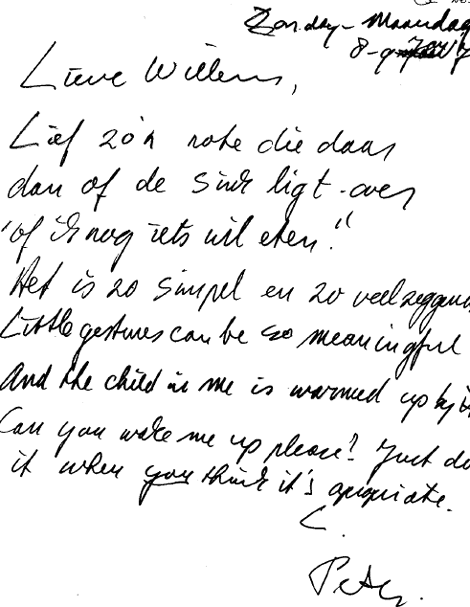 Zondag - Maandag
8-9
Lieve Willem,
Lief zo'n note die daar
dan op de sink ligt over
"of ik nog iets wil eten."
Het is zo simpel en zo veelzeggend
Little gestures can be so meaningful
And the child in me is warmed up by it
Can you wake me up please? Just do
it when you think it's apropriate.
Peter.